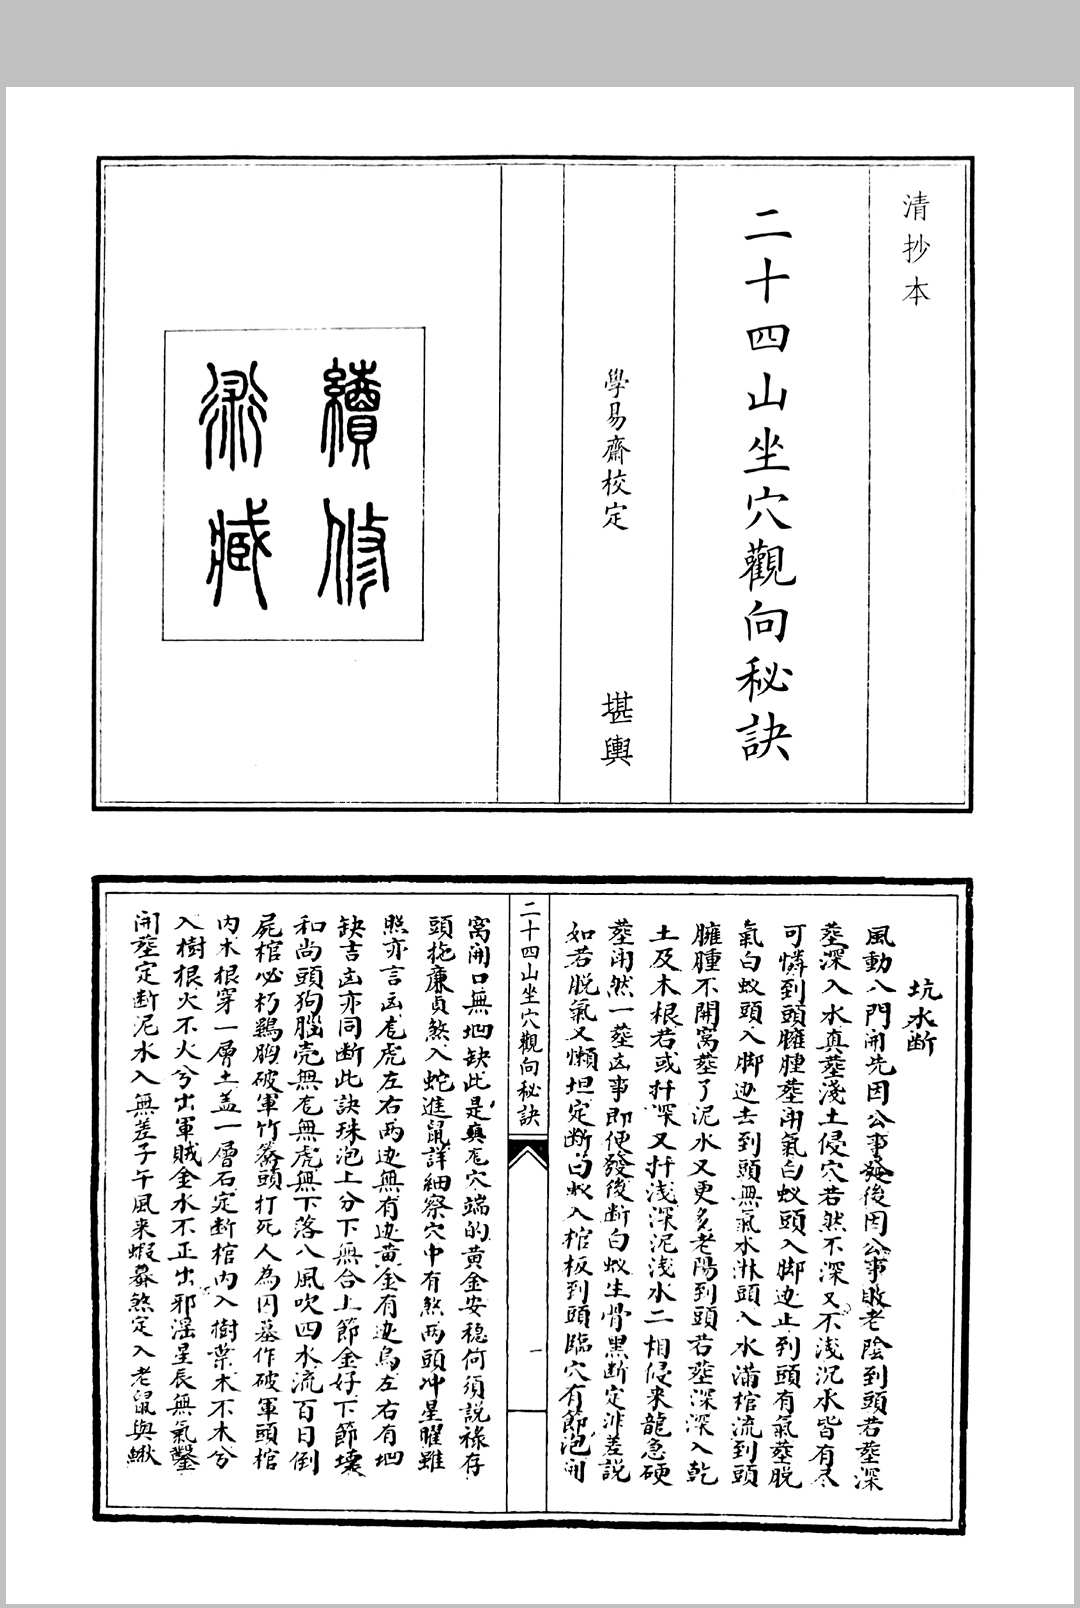 清抄本
二十四山坐穴觀向秘訣
學易齋校定
堪輿
續修
術藏
坑水断
風動八門開先因公事發後因公事敗老陰到頭若塟深
塟深入水真塟淺土侵穴若然不深又不淺沉水皆有尽
可憐到頭臃腫塟用氣白蚁頭入脚边止到頭有氣塟脱
氣白蚁頭入脚边去到頭無氣水淋頭入水滿棺流到頭
臃腫不開窩塟了泥水又更多老陽到頭若塟深深入乾
土及木根若或扦深又扦淺深泥淺水二相侵来龍急硬
塟用然一塟凶事即便發後断白蚁生骨黑断定非差説
如若脱氣又懶坦定断白蚁入棺板到頭臨穴有節泡開
二十四山坐穴觀向秘訣
一
窩開口無凹缺此是真危穴端的黄金安穩何須説祿存
頭拖廉貞煞入蛇進鼠詳細察穴中有煞两頭冲星曜雖
照亦言凶危虎左右两边無有边黄金有边烏左右有凹
缺言凶亦同断此訣珠泡上分下無合上節金好下節壊
和尚頭狗腦壳無危無虎無下落八風吹四水流百日倒
屍棺必朽鷄胸破軍竹篙頭打死人為囚墓作破軍頭棺
内木根穿一層土盖一層石定断棺内入樹葉木不木兮
入樹根火不火兮出軍賊金水不正出邪滛星辰無氣鑿
開塟定断泥水入無差子午風来蝦蟇煞定入老鼠與鰍